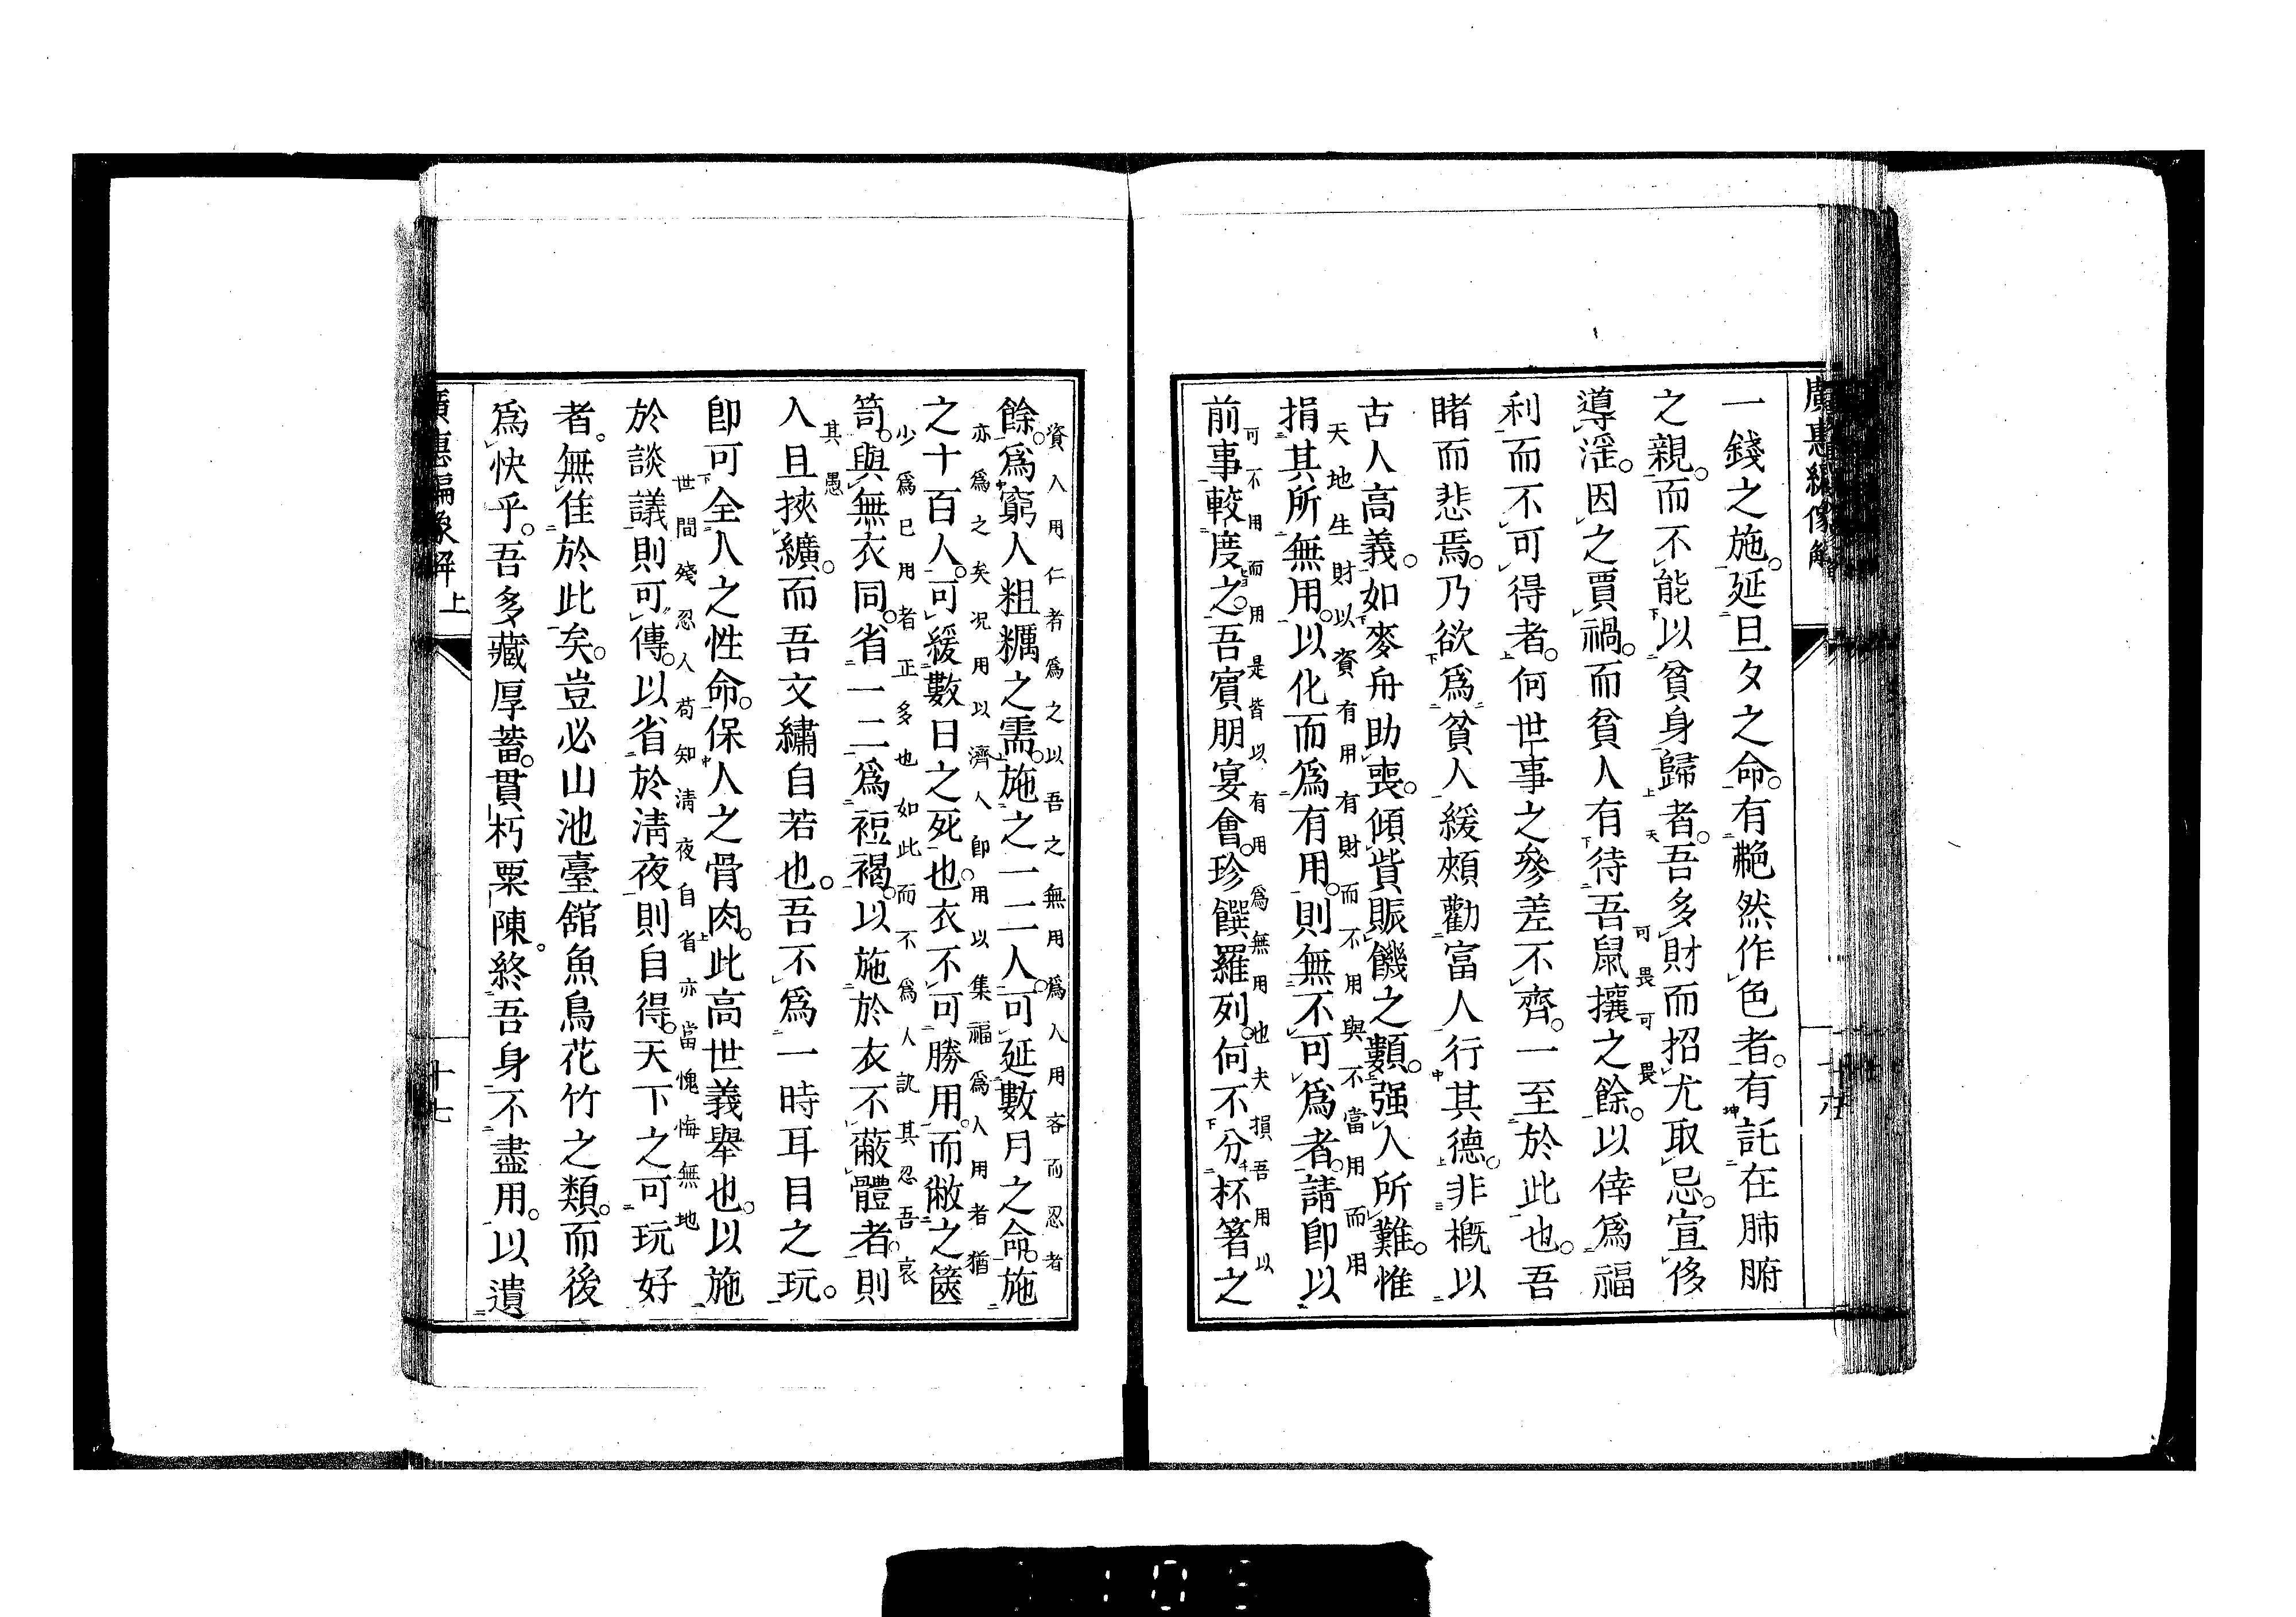 一錢之施。延旦夕之命。有艴然作色者。有託在肺腑
之親。而不能以貧身歸者。吾多財而招尤取忌。宣侈
導淫。因之賈禍。而貧人有待吾鼠攘之餘。以倖爲福
可畏可畏
利而不可得者。何世事之參差不齊。一至於此也。吾
睹而悲焉。乃欲爲貧人緩頰勸富人行其德。非概以
古人高義。如麥舟助喪。傾貲賑饑之類。强人所難。惟
天地生財以資有用有財而不用與不當用而用
捐其所無用。以化而爲有用。則無不可爲者。請即以
可不用而用是皆以有用爲無用也夫損吾用以
前事較度之。吾賓朋宴會。珍饌羅列。何不分杯箸之
十六
資人用仁者爲之以吾之無用爲人用吝而忍者
餘。爲窮人粗糲之需。施之一二人。可延數月之命。施
亦爲之矣况用以濟人即用以集福爲人用者猶
之十百人。可緩數日之死也。衣不可勝用。而敝之篋
少爲已用者正多也如此而不爲人訿其忍吾哀
笥。與無衣同。省一二爲裋褐。以施於衣不蔽體者。則
其愚
人且挾纊。而吾文繡自若也。吾不爲一時耳目之玩。
即可全人之性命。保人之骨肉。此高世義舉也。以施
世間殘忍人苟知清夜自省亦當愧悔無地
於談議則可傳。以省於淸夜則自得。天下之可玩好
者。無佳於此矣。豈必山池臺舘魚鳥花竹之類。而後
爲快乎。吾多藏厚蓄。貫朽粟陳。終吾身不盡用。以遺
廣惠編像解 上
十七